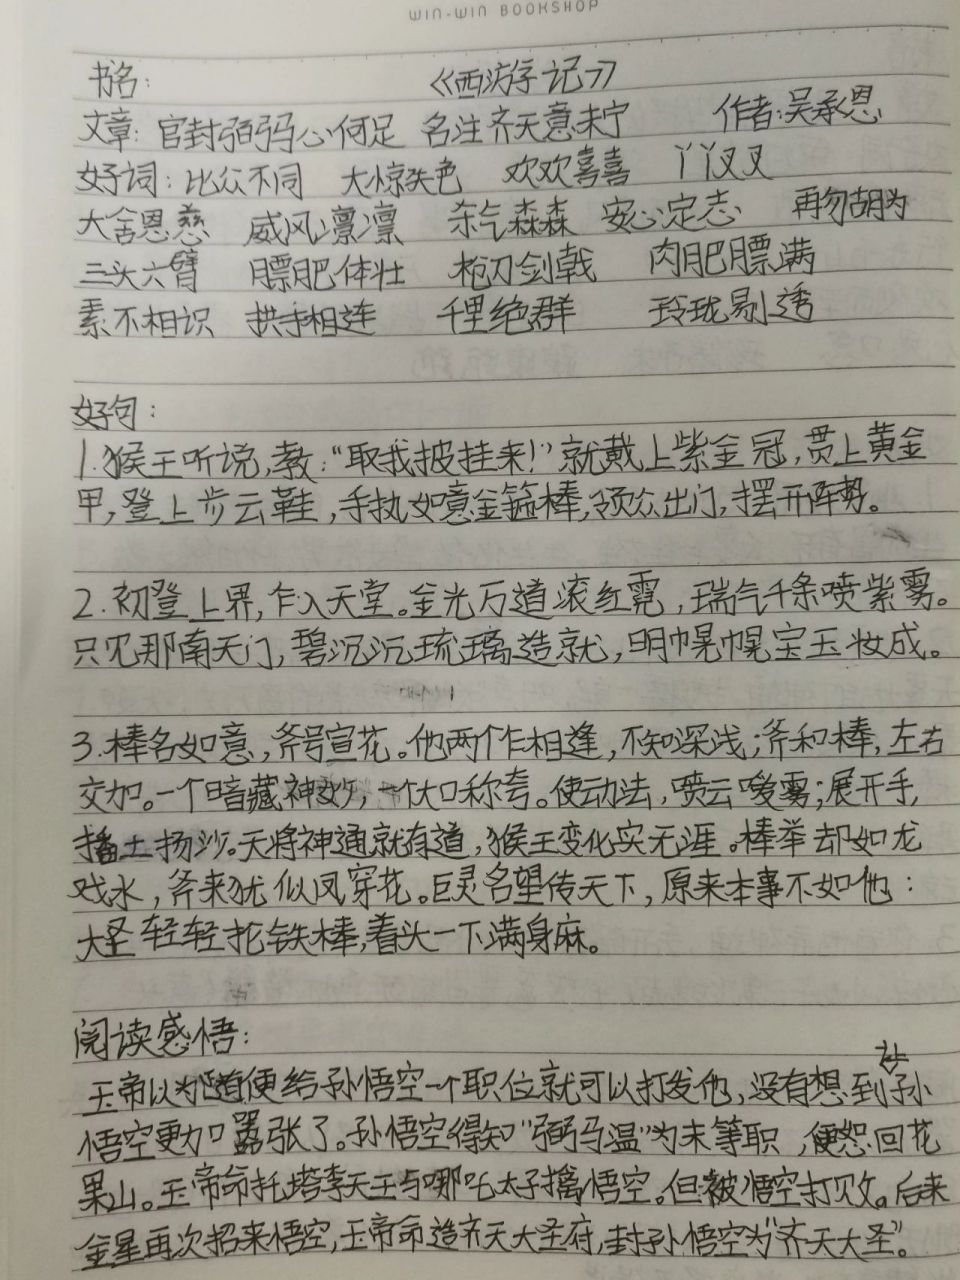 WIN-WIN BOOKSHOP
书名： 《西游记》
文章：官封弼马心何足 名注齐天意未宁 作者：吴承恩
好词：比众不同 大惊失色 欢欢喜喜 丫丫叉叉
大舍恩慈 威风凛凛 杀气森森 安心定志 再勿胡为
三头六臂 膘肥体壮 枪刀剑戟 肉肥膘满
素不相识 拱手相连 千里绝群 玲珑剔透
好句：
1.猴王听说，教："取我披挂来！"就戴上紫金冠，贯上黄金
甲，登上步云鞋，手执如意金箍棒，领众出门，摆开阵势。
2.初登上界，乍入天堂。金光万道滚红霓，瑞气千条喷紫雾。
只见那南天门，碧沉沉琉璃造就，明幌幌宝玉妆成。
3.棒名如意，斧号宣花。他两个乍相逢，不知深浅；斧和棒，左右
交加。一个暗藏神妙，一个大口称夸。使动法，喷云嗳雾；展开手，
播土扬沙。天将神通就有道，猴王变化实无涯。棒举却如龙
戏水，斧来犹似凤穿花。巨灵名望传天下，原来本事不如他：
大圣轻轻抡铁棒，着头一下满身麻。
阅读感悟：
玉帝以为随便给孙悟空一个职位就可以打发他，没有想到孙
悟空更加嚣张了。孙悟空得知"弼马温"为末等职，便怒回花
果山。玉帝命托塔李天王与哪吒太子擒悟空。但被悟空打败。后来
金星再次招来悟空，玉帝命造齐天大圣府，封孙悟空为"齐天大圣"。